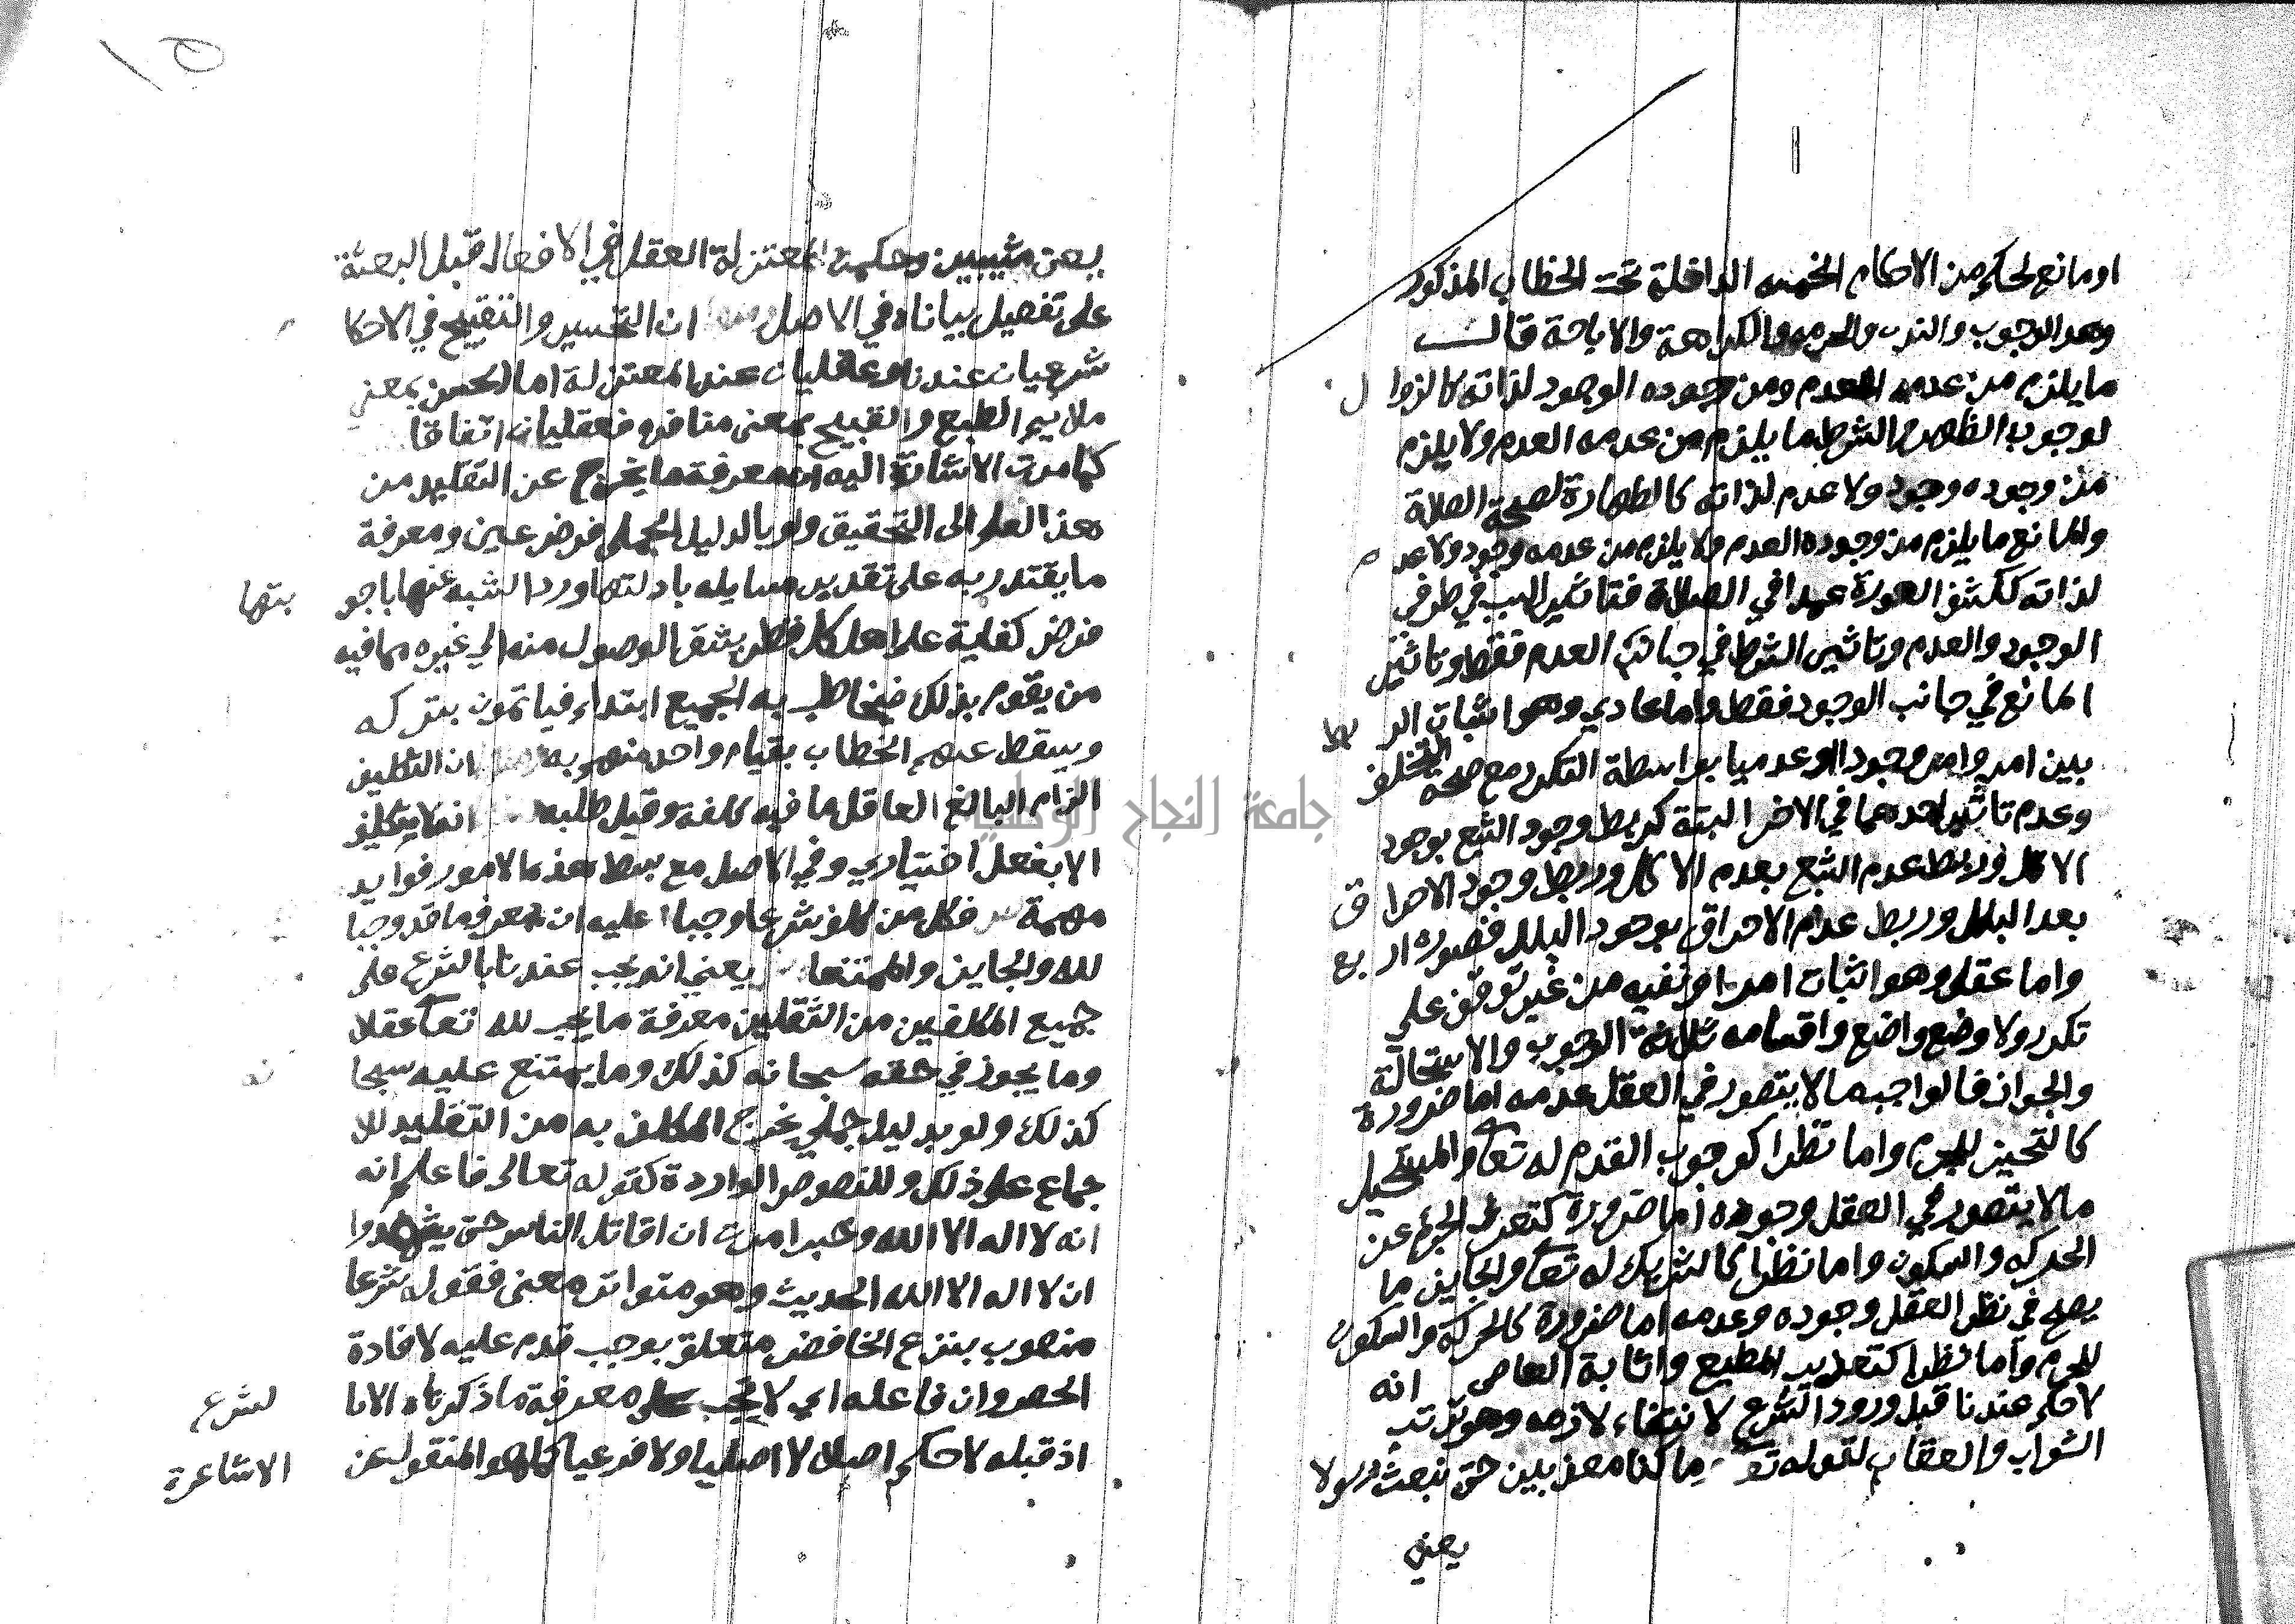 او مانع لحكم من الاحكام الخمسه الداخلة تحت الخطاب المذكور
وهد الوجوب والندب والحرمه والكراهة والاباحة قالـــب
ما يلزم من عدمه العدم ومن وجوده الوجود لذاته كالزوال
لوجوب الظهر والشرط ما يلزم من عدمه العدم ولا يلزم
من وجوده وجود ولا عدم لذاته كالطهارة لصحة الصلاة
والمانع ما يلزم من وجوده العدم ولا يلزم من عدمه وجود ولا عدم
لذاته ككشف العورة عمدا في الصلاة فتاثير السبب في طرفي
الوجود والعدم وتاثير الشرط في جانب العدم فقط وتاثير
المانع في جانب الوجود فقط واما عادي وهو اثبات الربط
بين امر وامر وجودا او عدميا بواسطة التكرر مع صحة التخلف
وعدم تاثير احدهما في الاخر البتة كربط وجود الشبع بوجود
الاكل وربط عدم الشبع بعدم الاكل وربط وجود الاحراق
بعد البلل وربط عدم الاحراق بوجود البلل فصوره اربع
واما عقلي وهو اثبات امر او نفيه من غير توقف علي
تكرر ولا وضع واضع واقسامه ثلاثة الوجوب والاستحالة
والجواز فالواجب ما لا يتصور في العقل عدمه اما ضرورة
كالتحيز للجرم واما نظرا كوجوب القدم له تعا والمستحيل
ما لا يتصور في العقل وجوده اما ضرورة كتعري الجرم عن
الحركه والسكون واما نظرا كالشريك له تعا والجايز ما
يصح في نظر العقل وجوده وعدمه اما ضرورة كالحركة والسكون
للجرم واما نظرا كتعذيب المطيع واثابة العاصي انه
لا حكم عندنا قبل ورود الشرع لا نتفاء لازمه وهو ترتب
الثواب والعقاب لقوله تع وما كنا معذبين حتى نبعث رسولا
يعني
١٥
يعن مثيبين وحكمت المعتزلة العقل في الافعال قبل البعثة
على تفصيل بيناه في الاصل ان التحسين والتقبيح في الاحكا
شرعيان عندنا وعقليان عند المعتزلة اما الحسن بمعني
ملايم الطبع والقبيح بمعنى منافره فعقليان اتفاقا
كما مرت الاشارة اليه معرفة ما يخرج عن التقليد من
هذا العلم الى التحقيق ولو بالدليل الجملي فرض عين ومعرفة
ما يقتدر به على تقدير مسايله بادلتها ورد الشبه عنها باجو بتها
فرض كفاية على اهل كل قطر يشق الوصول منه الي غيره مما فيه
من يقوم بذلك فيخاطب به الجميع ابتداء فياثمون بتركه
ويسقط عنهم الخطاب بقيام واحد منهم به ان التكليف
الزام البالغ العاقل ما فيه كلفة وقيل طلبه انه لا يتكلف
الا بفعل اختياري وفي الاصل مع بسط هذه الامور فوايد
مهمة فكل من كلف شرعا وجبا عليه ان يعرف ما قد وجبا
لله والجايز والممتنعا يعني انه يجب عندنا بالشرع على
جميع المكلفين من الثقلين معرفة ما يجب لله تعا عقلا
وما يجوز في حقه سبحانه كذلك وما يمتنع عليه سبحا نه
كذلك ولو بدليل جملي يخرج المكلف به من التقليد للا
جماع على ذلك وللنصوص الواردة كقوله تعالى فاعلم انه
انه لا اله الا الله وخبر امرت ان اقاتل الناس حتى يشهدوا
ان لا اله الا الله الحديث وهو متواتر معنى فقوله شرعا
منصوب بنزع الخافض متعلق بوجب قدم عليه لافادة
الحصر وان فاعله اي لا يجب معرفة ما ذكرناه الا با لشرع
اذ قبله لا حكم اصلا لا اصليا ولا فرعيا كما هو المنقول عن الاشاعرة
جامعة النجاح الوطنية